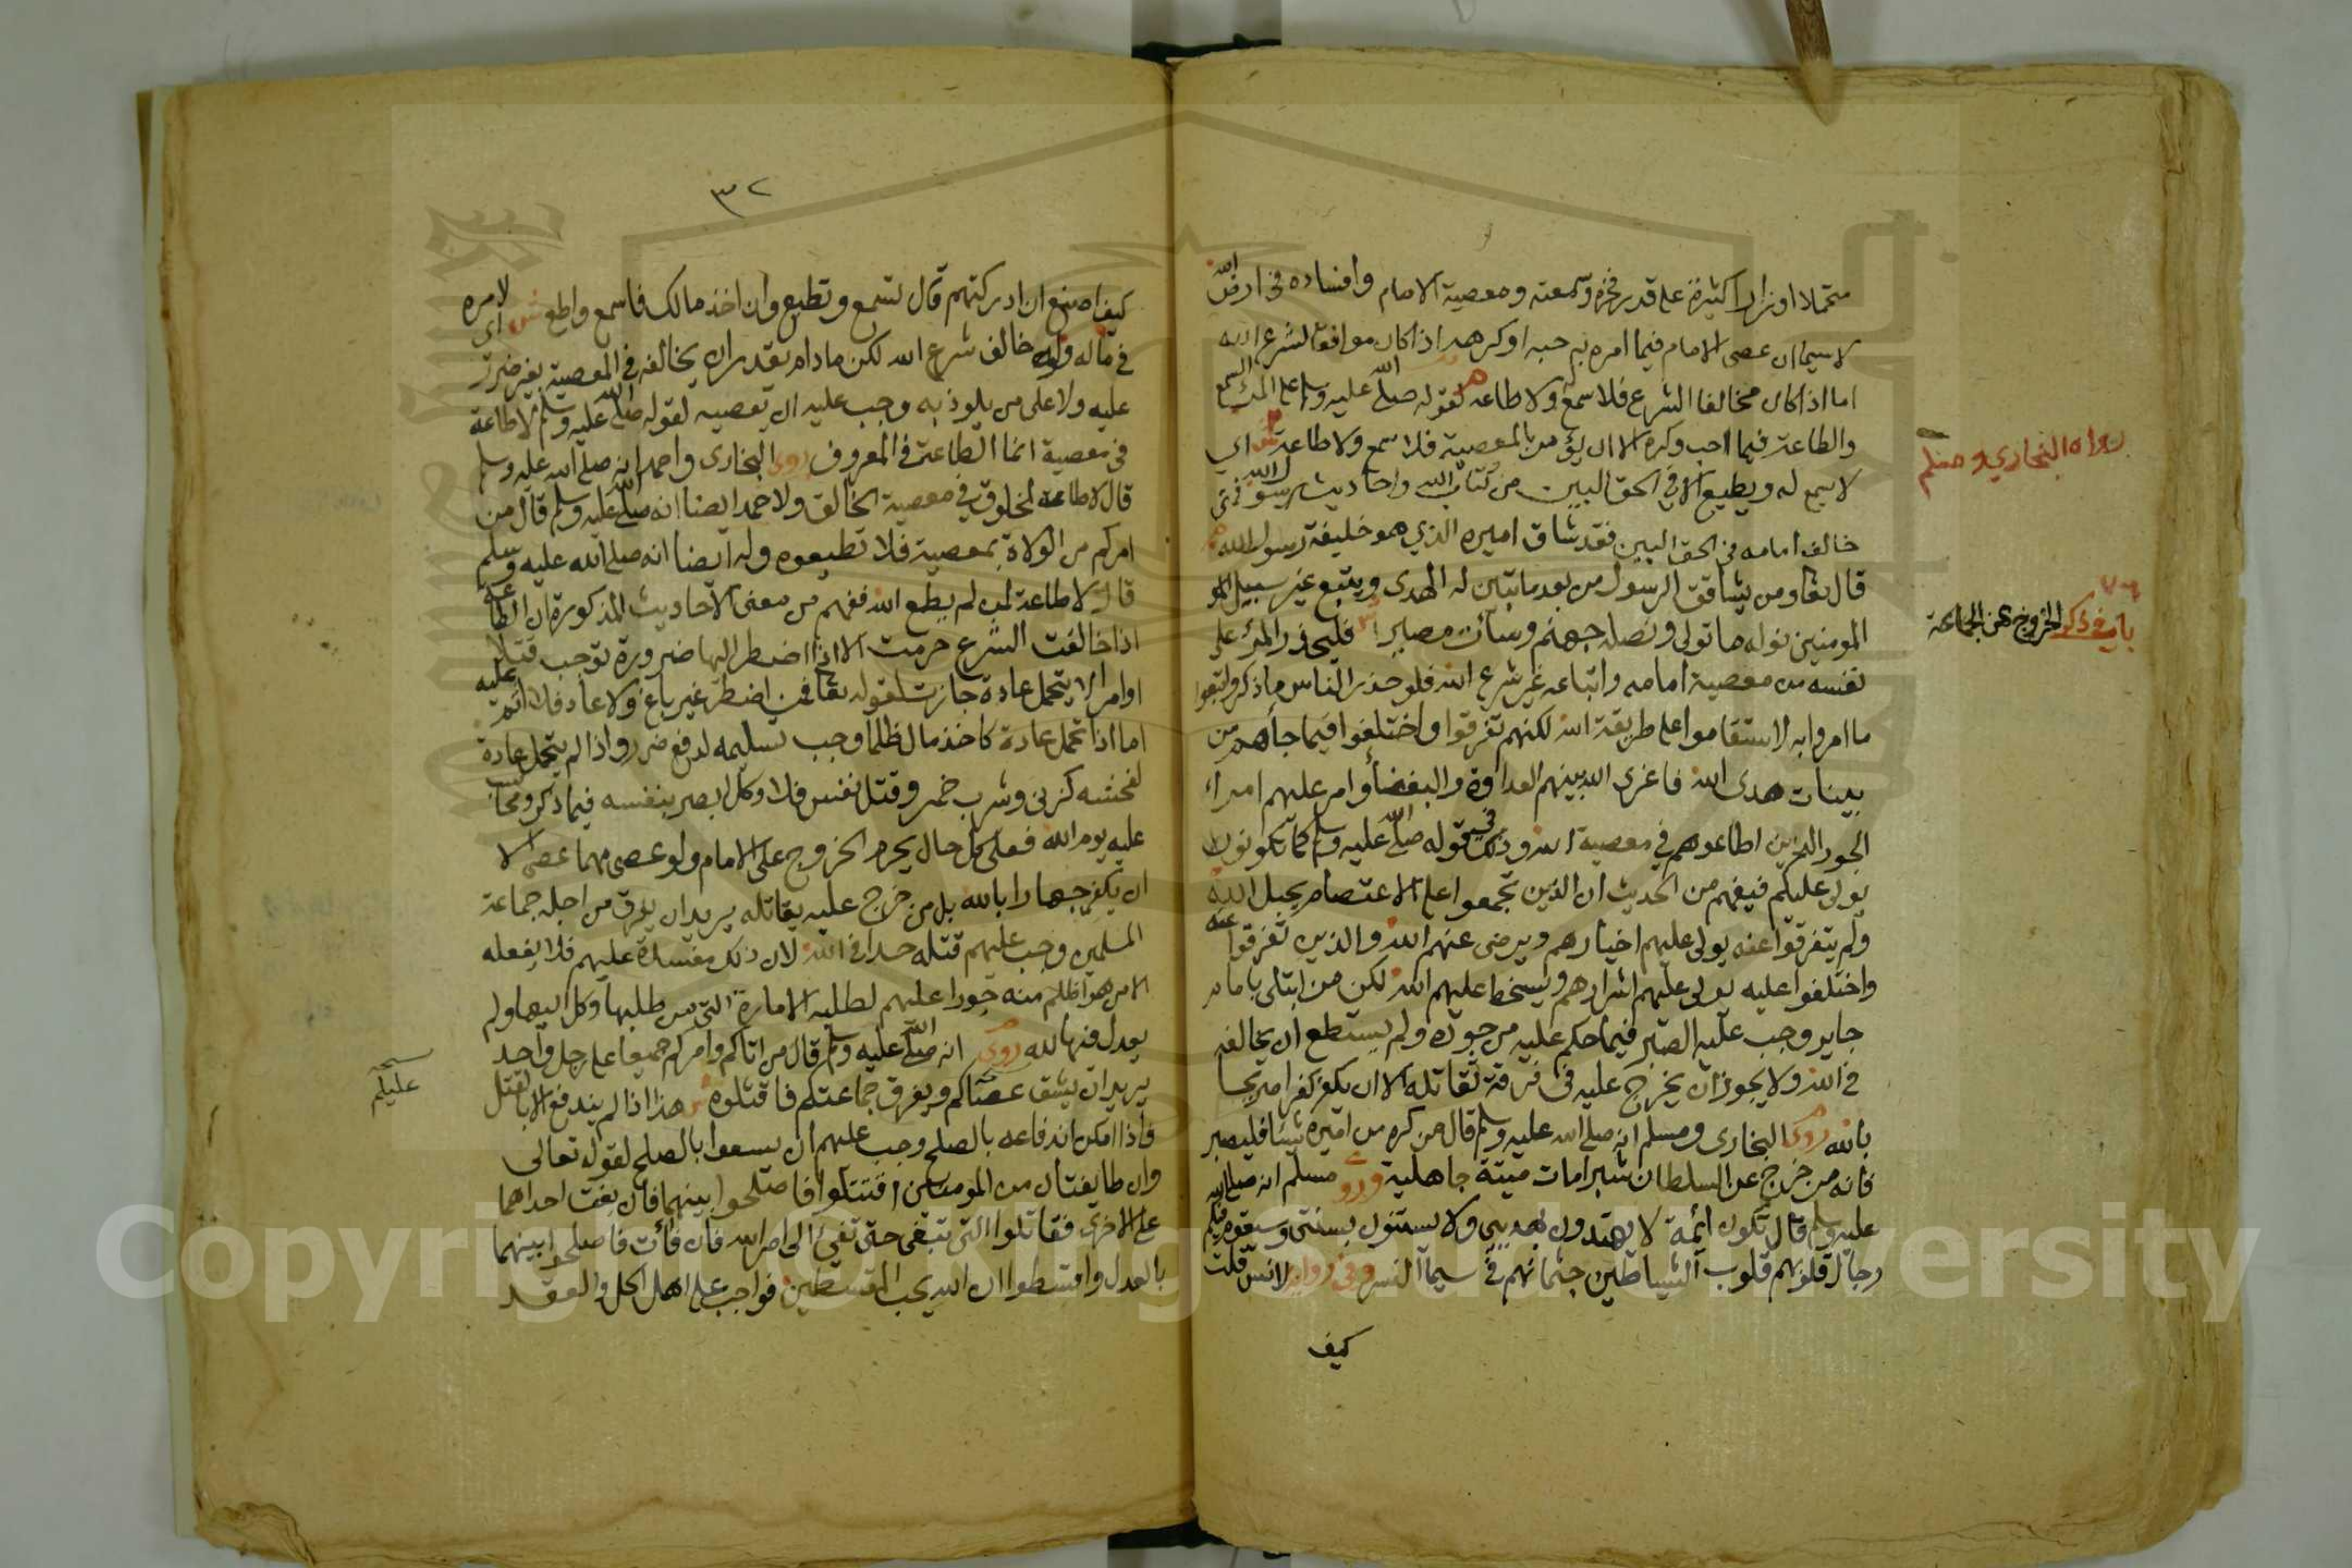 متحملا اوزارا كثيرة على قدر فخره وسمعته ومعصية الامام وافساده في ارض الله
لاسيما ان عصى الامام فيما امره به حبه او كرهه اذا كان موافقا لشرع الله
اما اذا كان مخالفا الشرع فلا سمع ولا طاعة لقوله صلى الله عليه وسلم على المرء السمع
والطاعة فيما احب وكره الا ان يؤمر بالمعصية فلا سمع ولا طاعة ش اي
رواه البخاري ومسلم
لا يسمع له ويطيع الا في الحق المبين من كتاب الله واحاديث رسول الله فمن
خالف امامه في الحق المبين فقد شاق اميره الذي هو خليفة رسول الله
قال تعا ومن يشاقق الرسول من بعد ما تبين له الهدى ويتبع غير سبيل
باب في ذكر الخروج عن الجماعة
المومنين نوله ما تولى ونصله جهنم وسآت مصيرا فليحذر المرء على
نفسه من معصية امامه واتباعه غير شرع الله فلو حذر الناس ما ذكر واتبعوا
ما امروا به لاستقاموا على طريقة الله لكنهم تفرقوا واختلفوا فيما جأهم من
بينات هدى الله فاغرى الله بينهم العداوة والبغضأ وامر عليهم امراء
الجور الذين اطاعوهم في معصية الله وذلك قوله صلى الله عليه وسلم كما تكونون
يولى عليكم فيفهم من الحديث ان الذين تجمعوا على الاعتصام بحبل الله
ولم يتفرقوا عنه يولى عليهم اخيارهم ويرضى عنهم الله والذين تفرقوا عنه
واختلفوا عليه يولى عليهم اشرارهم ويسخط عليهم الله لكن من ابتلى بامام
جاير وجب عليه الصبر فيما حكم عليه من جوره ولم يستطع ان يخالفه
في الله ولا يجوز ان يخرج عليه في فرقة تقاتله الا ان يكفر كفرا صريحا
بالله روى البخارى ومسلم انه صلى الله عليه وسلم قال من كره من اميره شيئا فليصبر
فانه من خرج عن السلطان شبرا مات ميتة جاهلية وروى مسلم انه صلى الله
عليه وسلم قال تكون ائمة لا يهتدون بهديي ولا يستنون بسنتي وسيقوم فيكم
رجال قلوبهم قلوب الشياطين جثمانهم في سيما النس وفي رواية لانس قلت
كيف
٣٢
كيف اصنع ان ادركتهم قال تسمع وتطيع وان اخذ مالك فاسمع واطع ش اي لامره
في ماله وان خالف شرع الله لكن مادام يقدر ان يخالفه في المعصية بغير ضرر
عليه ولا على من يلوذ به وجب عليه ان يعصيه لقوله صلى الله عليه وسلم لا طاعة
في معصية انما الطاعة في المعروف روى البخارى واحمد انه صلى الله عليه وسلم
قال لا طاعة لمخلوق في معصية الخالق ولاحمد ايضا انه صلى الله عليه وسلم قال من
امركم من الولاة بمعصية فلا تطيعوه وله ايضا انه صلى الله عليه وسلم
قال لا طاعة لمن لم يطع الله ففهم من معنى الاحاديث المذكورة ان الطاعة
اذا خالفت الشرع حرمت الا اذا اضطر اليها ضرورة توجب قتلا
او امرا لا يتحمل عادة جازت لقوله تعا فمن اضطر غير باغ ولا عاد فلا اثم عليه
اما اذا تحمل عادة كاخذ مال ظلما وجب تسليمه لدفع ضرر واذا لم يتحمل عادة
لفحشه كزنى وشرب خمر وقتل نفس فلا وكل ابصر بنفسه فيما ذكر ومحاسب
عليه يوم الله فعلى كل حال يحرم الخروج على الامام ولو عصى مهما عصى الا
ان يكفر جهارا بالله بل من خرج عليه يقاتله يريد ان يفرق من اجله جماعة
المسلمين وجب عليهم قتله حدا في الله لان ذلك مفسدة عليهم فلا يفعله
الا من هو اظلم منه جورا عليهم لطلبه الامارة التي من طلبها وكل اليها ولم
يعدل فيها لله روى انه صلى الله عليه وسلم قال من اتاكم وامركم جميعا على رجل واحد
يريد ان يشق عصاكم ويفرق جماعتكم فاقتلوه ش هذا اذا لم يندفع الا بالقتل
عليكم
فاذا امكن اندفاعه بالصلح وجب عليهم ان يسعوا بالصلح لقوله تعالى
وان طايفتان من المومنين اقتتلوا فاصلحوا بينهما فان بغت احداهما
على الاخرى فقاتلوا التي تبغي حتى تفئ الى امر الله فان فأت فاصلحوا بينهما
بالعدل واقسطوا ان الله يحب المقسطين فواجب على اهل الحل والعقد
Copyright © King Saud University